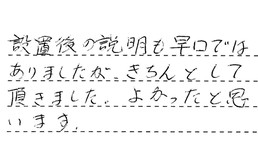 設置後の説明も早口では
ありましたが、きちんとして
頂きました。よかったと思
います。